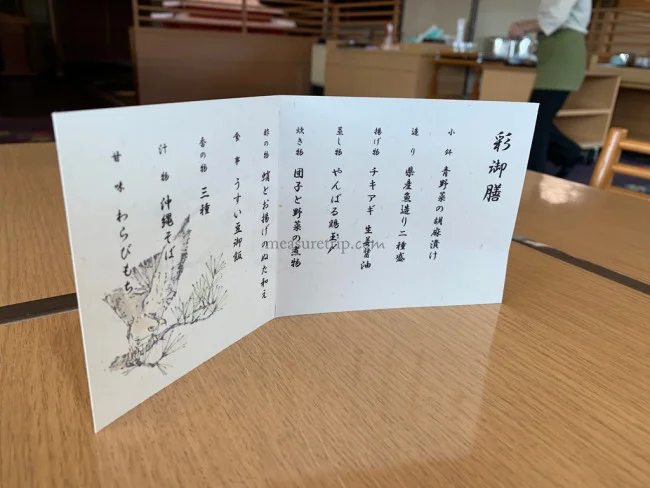 彩御膳
小鉢 青野菜の胡麻漬け
造り 県産魚造り二種盛
揚げ物 チキアギ 生姜醤油
蒸し物 やんばる鶏玉〆
炊き物 団子と野菜の煮物
酢の物 蛸とお揚げのぬた和え
食事 うすい豆御飯
香の物 三種
汁物 沖縄そば
甘味 わらびもち
measuretrip.com